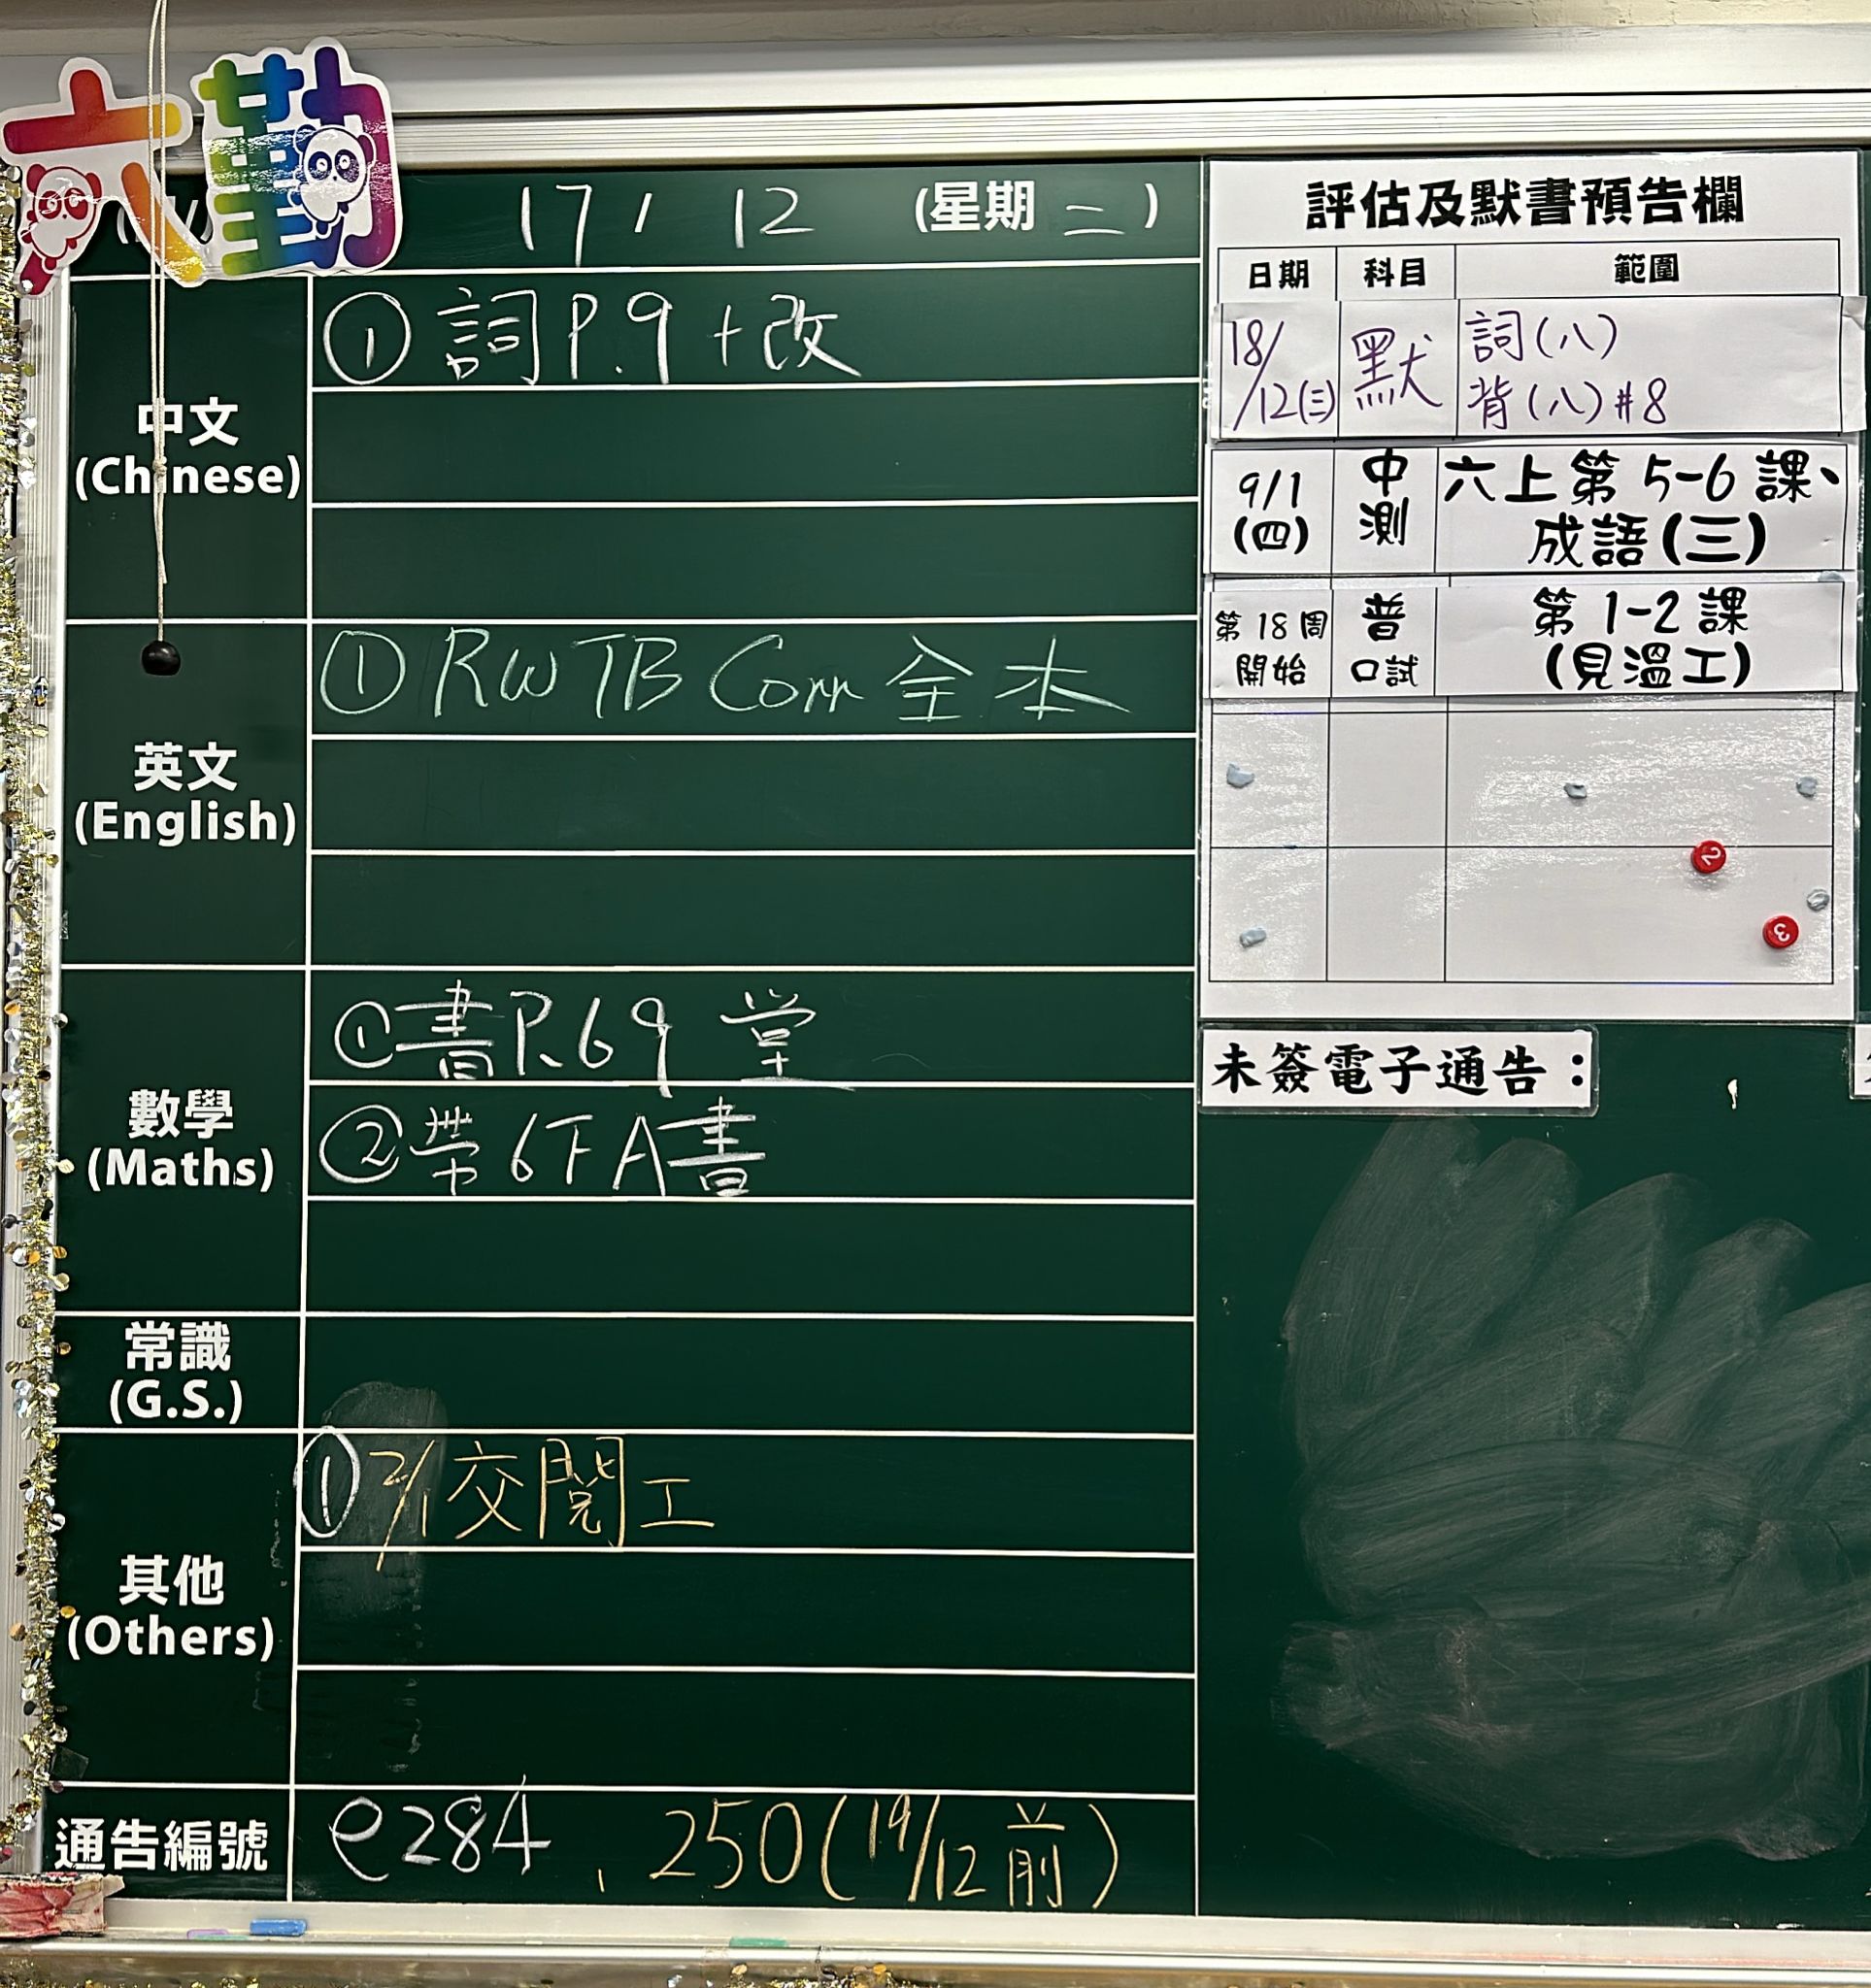 六勤
17 / 12 (星期二)
中文
(Chinese)
① 詞 P.9 + 改
英文
(English)
① RW TB Corr 全本
數學
(Maths)
① 書 P.69 堂
② 帶 6F A 書
常識
(G.S.)
其他
(Others)
① 2/1 交閱工
通告編號
e284、250(19/12前)
評估及默書預告欄
日期 科目 範圍
18/12(三) 默 詞(八)
背(八)#8
9/1
(四)
中
測
六上第 5-6 課、
成語(三)
第 18 周
開始
普
口試
第 1-2 課
(見溫工)
2
3
未簽電子通告：